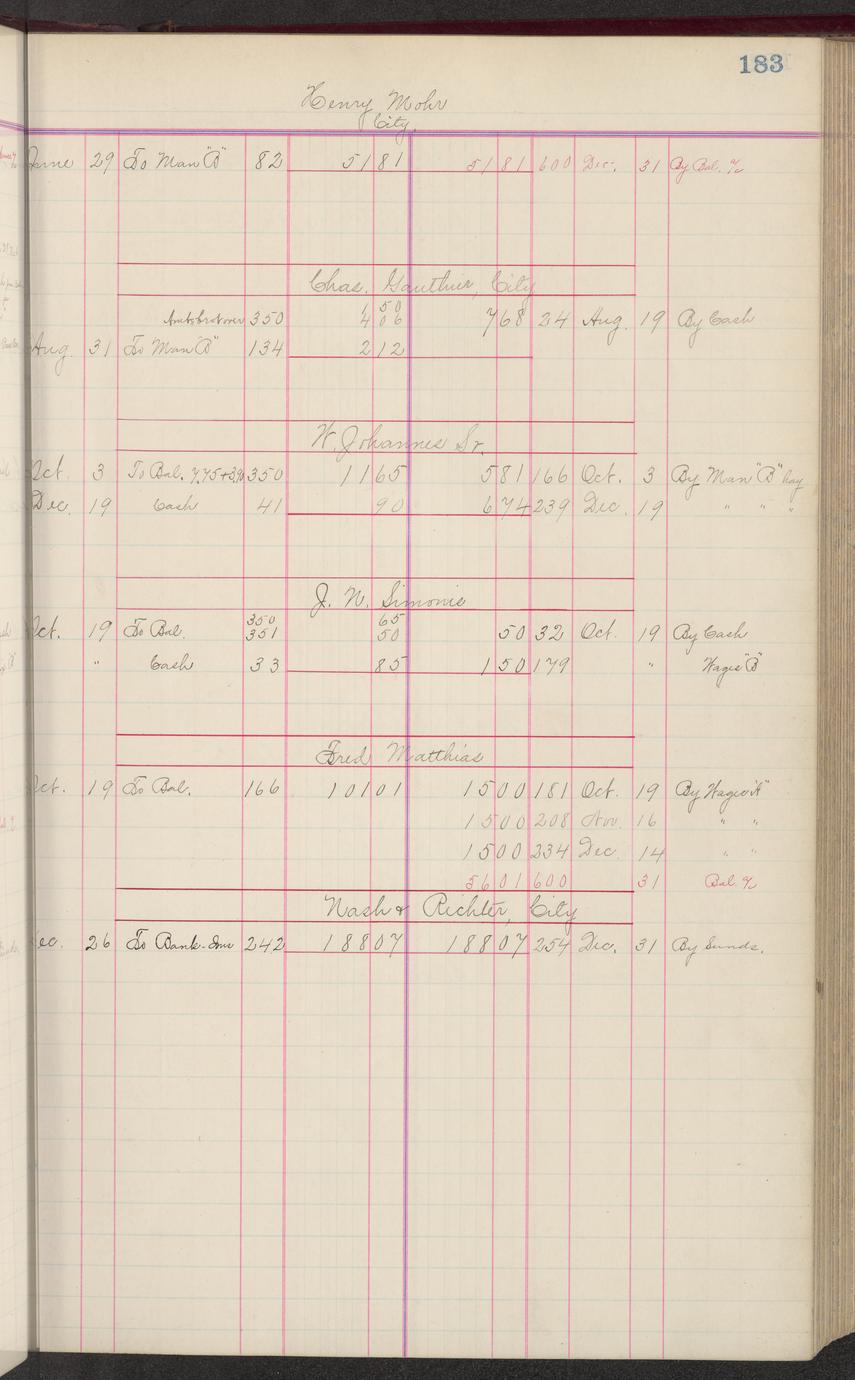 183
Henry Mohr
City
June 29 To Man "B" 82 51 81 51 81 600 Dec. 31 By Bal. %
Chas. Gauthier, City
350 1 50 4 06 7 68 24 Aug. 19 By Cash
Aug. 31 To Man "B" 134 2 12
W. Johannes Sr.
Oct. 3 To Bal. 7.75+3.90 350 11 65 5 81 166 Oct. 3 By Man "B" hay
Dec. 19 Cash 41 90 6 74 239 Dec. 19 " " "
J. N. Simonis
Oct. 19 To Bal. 350 351 65 50 50 32 Oct. 19 By Cash
" Cash 33 85 1 50 179 " Wages "B"
Fred Matthias
Oct. 19 To Bal. 166 101 01 15 00 181 Oct. 19 By Wages "A"
15 00 208 Nov. 16 " "
15 00 234 Dec. 14 " "
56 01 600 31 Bal. %
Nash & Richter, City
Dec. 26 To Bank-Inv 242 188 07 188 07 254 Dec. 31 By Sunds.